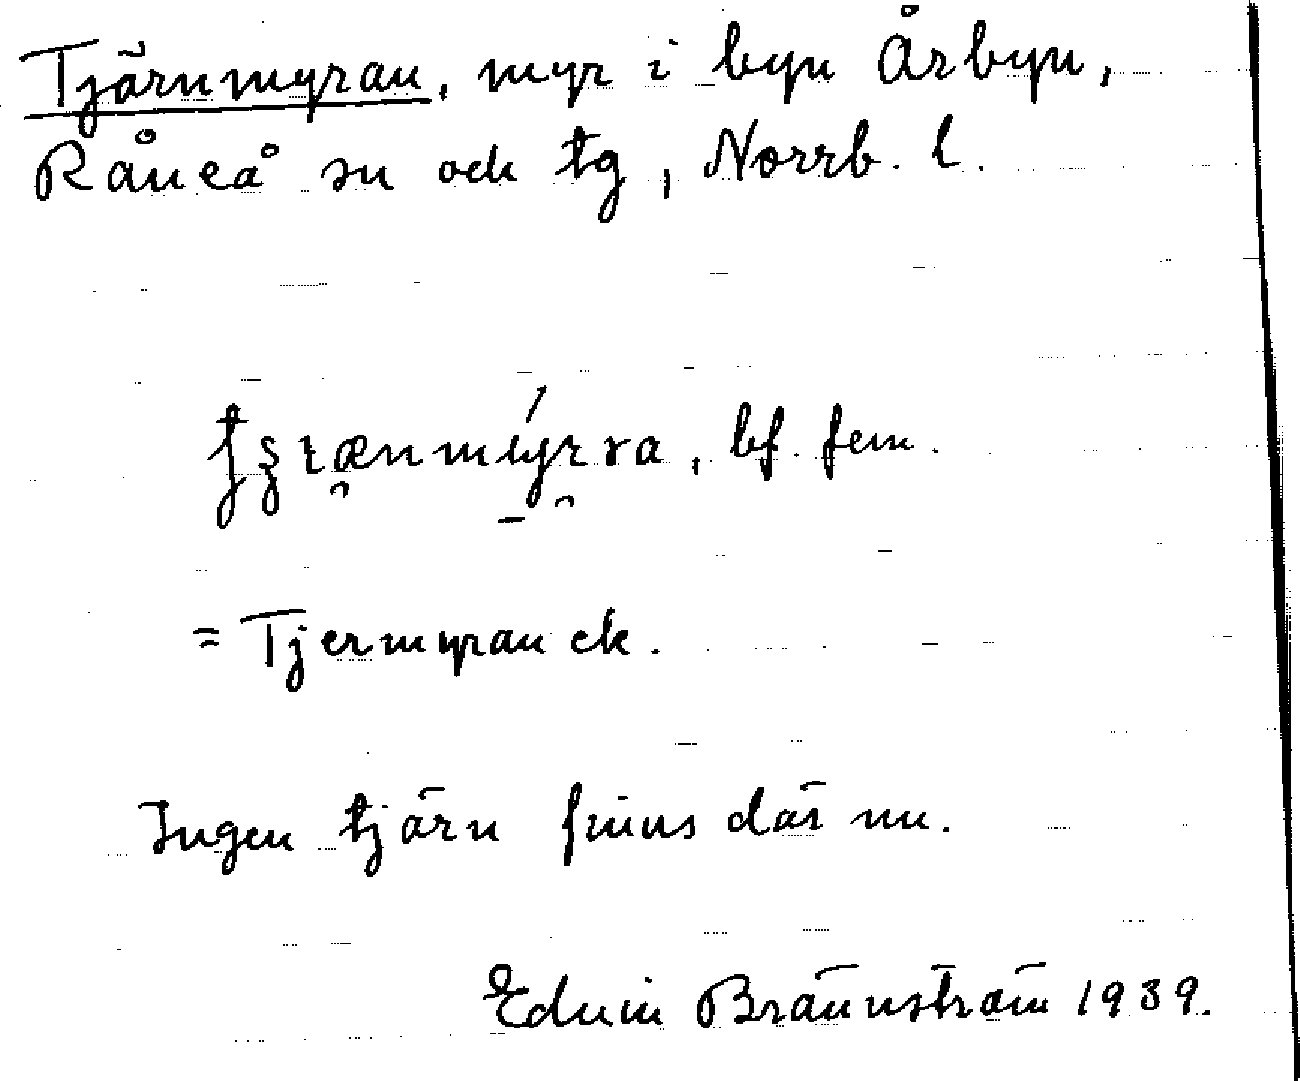 Tjärnmyran, myr i byn Årbyn,
Råneå sn och tg, Norrb. l.
bf. fem.
= Tjermyran ek.
Ingen tjärn finns där nu.
Edvin Brännström 1939.